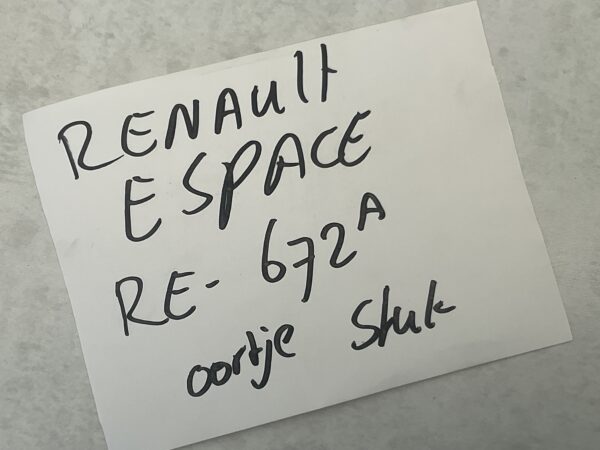 RENAULT
ESPACE
RE- 672A
oortje stuk